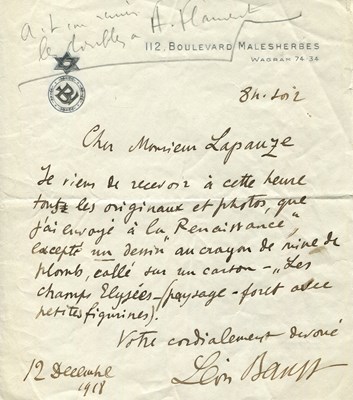 A-t-on remis
les doubles à A. Flament
112, BOULEVARD MALESHERBES
WAGRAM 74-34
8h. soir
Cher Monsieur Lapauze
Je viens de recevoir à cette heure
tous les originaux et photos, que
j'ai envoyé à la "Renaissance",
excepté un dessin au crayon de mine de
plomb, collé sur un carton - "Les
champs Elysées - (paysage - foret avec
petites figurines).
Votre cordialement devoué
12 Decembre
1918
Léon Bakst